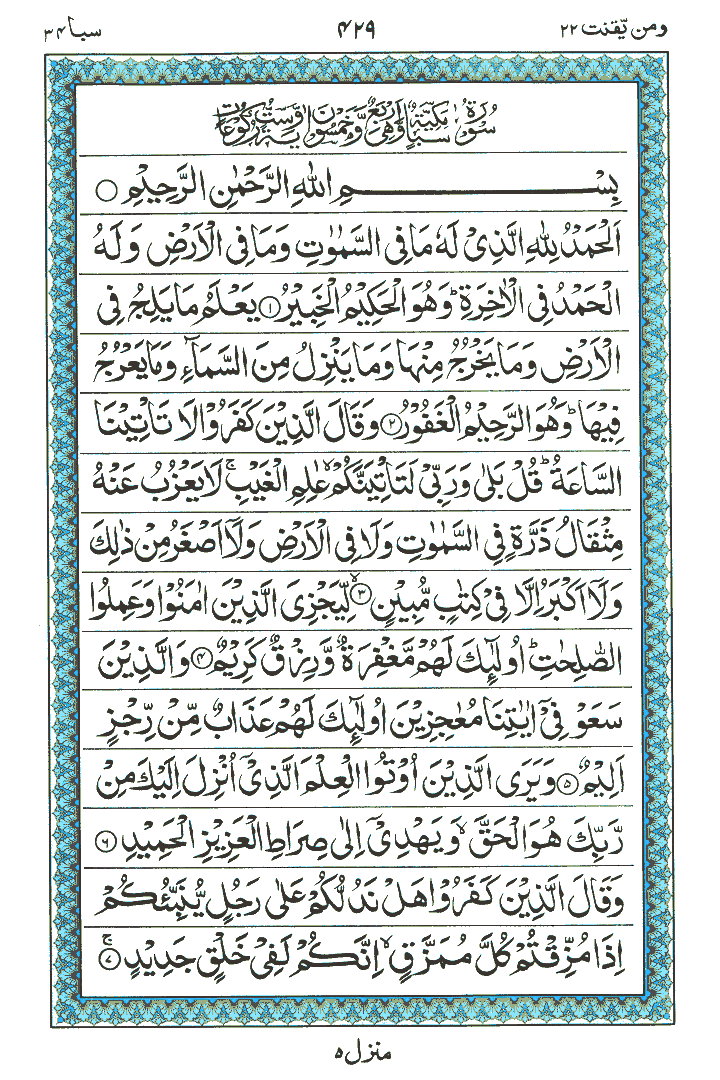 ومن يّقنت ٢٢ ٤٢٩ سبا ٣٤
سُوْرَةُ سَبَاٍ مَكِّيَّةٌ وَّهِيَ اَرْبَعٌ وَّخَمْسُوْنَ اٰيَةً وَّسِتُّ رُكُوْعَاتٍ
بِسْمِ اللهِ الرَّحْمٰنِ الرَّحِيْمِ ○
اَلْحَمْدُ لِلّٰهِ الَّذِيْ لَهٗ مَا فِى السَّمٰوٰتِ وَمَا فِى الْاَرْضِ وَلَهُ
الْحَمْدُ فِى الْاٰخِرَةِ ؕ وَهُوَ الْحَكِيْمُ الْخَبِيْرُ ﴿۱﴾ يَعْلَمُ مَا يَلِجُ فِى
الْاَرْضِ وَمَا يَخْرُجُ مِنْهَا وَمَا يَنْزِلُ مِنَ السَّمَآءِ وَمَا يَعْرُجُ
فِيْهَا ؕ وَهُوَ الرَّحِيْمُ الْغَفُوْرُ ﴿۲﴾ وَقَالَ الَّذِيْنَ كَفَرُوْا لَا تَاْتِيْنَا
السَّاعَةُ ؕ قُلْ بَلٰى وَرَبِّيْ لَتَاْتِيَنَّكُمْ ۙ عٰلِمِ الْغَيْبِ ۚ لَا يَعْزُبُ عَنْهُ
مِثْقَالُ ذَرَّةٍ فِى السَّمٰوٰتِ وَلَا فِى الْاَرْضِ وَلَاۤ اَصْغَرُ مِنْ ذٰلِكَ
وَلَاۤ اَكْبَرُ اِلَّا فِيْ كِتٰبٍ مُّبِيْنٍ ﴿۳﴾ۙ لِّيَجْزِيَ الَّذِيْنَ اٰمَنُوْا وَعَمِلُوا
الصّٰلِحٰتِ ؕ اُولٰٓئِكَ لَهُمْ مَّغْفِرَةٌ وَّرِزْقٌ كَرِيْمٌ ﴿۴﴾ وَالَّذِيْنَ
سَعَوْ فِيْۤ اٰيٰتِنَا مُعٰجِزِيْنَ اُولٰٓئِكَ لَهُمْ عَذَابٌ مِّنْ رِّجْزٍ
اَلِيْمٌ ﴿۵﴾ وَيَرَى الَّذِيْنَ اُوْتُوا الْعِلْمَ الَّذِيْۤ اُنْزِلَ اِلَيْكَ مِنْ
رَّبِّكَ هُوَ الْحَقَّ ۙ وَيَهْدِيْۤ اِلٰى صِرَاطِ الْعَزِيْزِ الْحَمِيْدِ ﴿۶﴾
وَقَالَ الَّذِيْنَ كَفَرُوْا هَلْ نَدُلُّكُمْ عَلٰى رَجُلٍ يُّنَبِّئُكُمْ
اِذَا مُزِّقْتُمْ كُلَّ مُمَزَّقٍ ۙ اِنَّكُمْ لَفِيْ خَلْقٍ جَدِيْدٍ ﴿۷﴾ۚ
منزل ٥